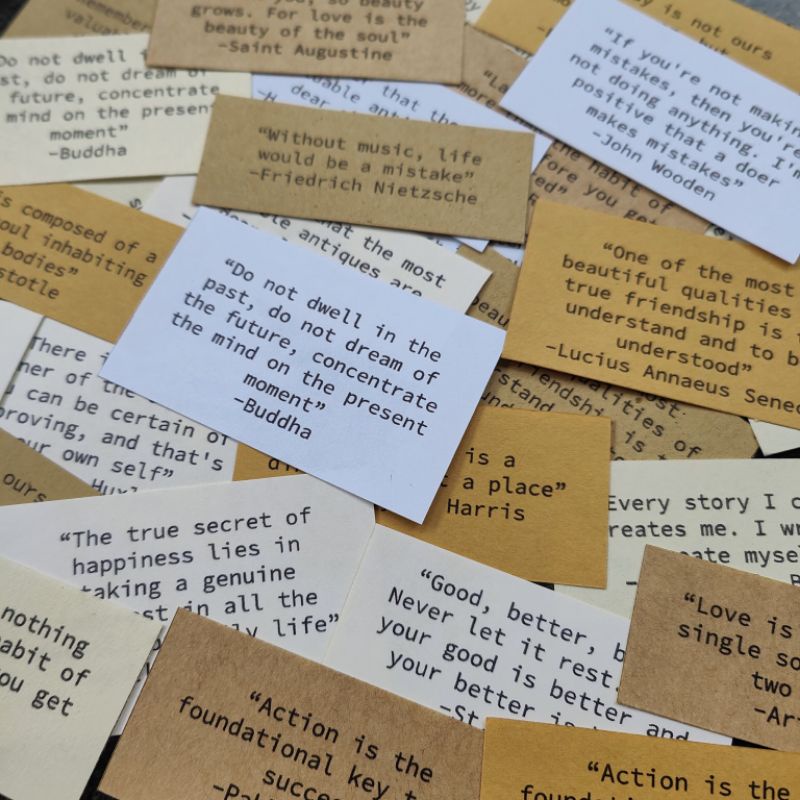 remember
valua
you, so beauty
grows. For love is the
beauty of the soul"
-Saint Augustine
y is not ours
but
Do not dwell i
st, do not dream of
future, concentrate
mind on the present
moment"
-Buddha
"If you're not makin
mistakes, then you're
not doing anything. I'm
positive that a doer
makes mistakes"
-John Wooden
er that the
uable anti
dear
-H
"La
more
the habit of
fore you get
ed"
"Without music, life
would be a mistake"
-Friedrich Nietzsche
is composed of a
soul inhabiting
bodies"
stotle
that the most
le antiques are
dear
"Do not dwell in the
past, do not dream of
the future, concentrate
the mind on the present
moment"
-Buddha
"One of the most
beautiful qualities
true friendship is
understand and to b
understood"
-Lucius Annaeus Senec
beau
stand
ualities of
friendship is t
There i
ner of the
can be certain of
proving, and that's
ur own self"
Huxl
ours
is a
t a place"
Harris
Every story I c
reates me. I wr
eate myse
"The true secret of
happiness lies in
taking a genuine
st in all the
ly life"
"Good, better, b
Never let it rest.
your good is better and
your better is
-St
"Love is
single so
two
-Ar
nothing
abit of
ou get
"Action is the
foundational key t
succe
-Pab
"Action is the
foundat